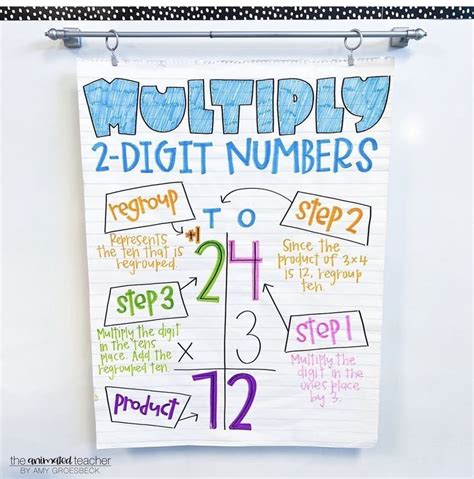 MULTIPLY
2-DIGIT NUMBERS
regroup
Represents
the ten that is
regrouped.
T O
step 2
Since the
product of 3x4
is 12, regroup
ten.
+1
24
step 3
Multiply the digit
in the tens
place. Add the
regrouped ten.
x 3
step 1
Multiply the
digit in the
ones place
by 3.
product
72
the animated teacher
BY AMY GROESBECK